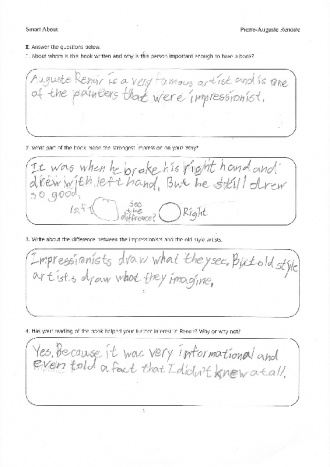 Smart About Pierre-Auguste Renoir
II. Answer the questions below.
1. About whom is the book written and why is this person important enough to have a book?
Auguste Renoir is a very famous artist and is one
of the painters that were impressionist.
2. What part of the book made the strongest impression on you? Why?
It was when he broke his right hand and
drew with left hand. But he still drew
so good.
left
See
the
difference?
Right
3. Write about the difference between the impressionists and the old style artists.
Impressionists draw what they see. But old style
artists draw what they imagine.
4. Has your reading of the book helped your further interest in Renoir? Why or why not?
Yes, Because it was very informational and
even told a fact that I didn't knew at all.